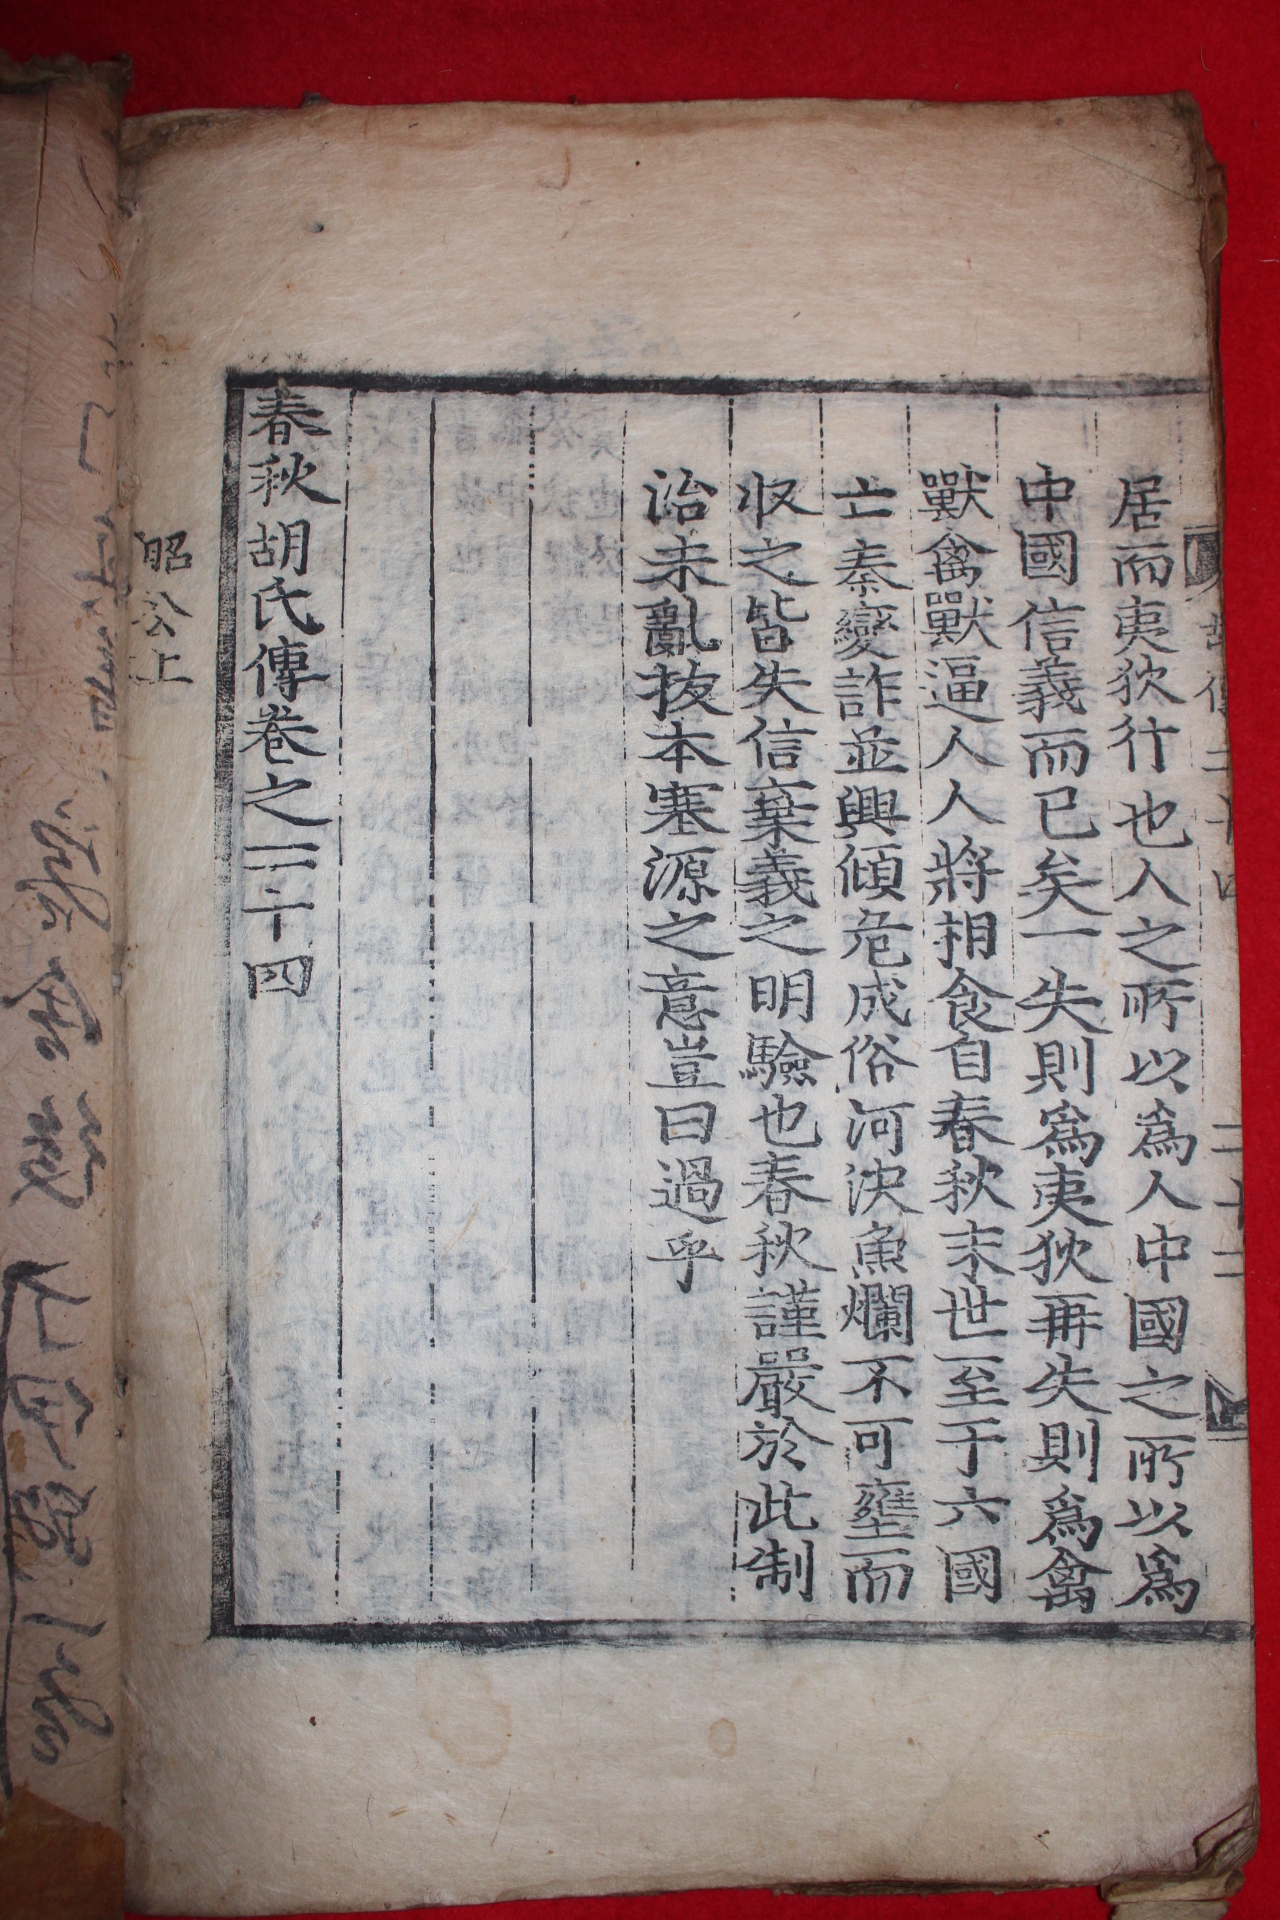 胡傳二十四 二十二
居而夷狄行也人之所以爲人中國之所以爲
中國信義而已矣一失則爲夷狄再失則爲禽
獸禽獸逼人人將相食自春秋末世至于六國
亡秦變詐並興傾危成俗河決魚爛不可壅而
収之皆失信棄義之明驗也春秋謹嚴於此制
治未亂拔本塞源之意豈曰過乎
春秋胡氏傳卷之二十四
昭公上